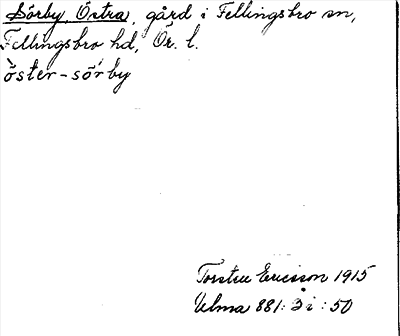 Sörby, Östra, gård i Fellingsbro sn,
Fellingsbro hd, Ör. l.
ö̀ster-sö́rby
Torsten Ericsson 1915
Ulma 881:3i:50